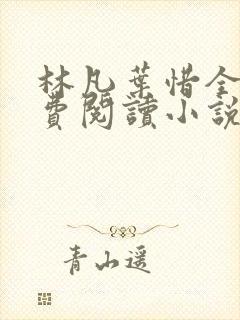 林凡葉惜全
費閱讀小說
青山遥